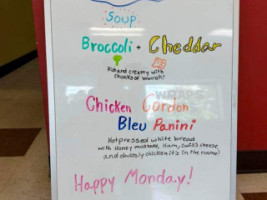 Soup
Broccoli + Cheddar
Rich and creamy with
chunks of broccoli!
WRAPS
Chicken Cordon
Bleu Panini
Hotpressed white bread
with honey mustard, Ham, Swiss cheese,
and obviously chicken (it's in the name)
Happy Monday!